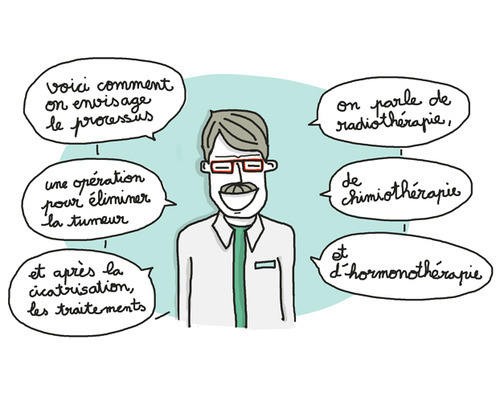 voici comment
on envisage
le processus
une opération
pour éliminer
la tumeur
et après la
cicatrisation,
les traitements
on parle de
radiothérapie,
de
chimiothérapie
et
d'hormonothérapie